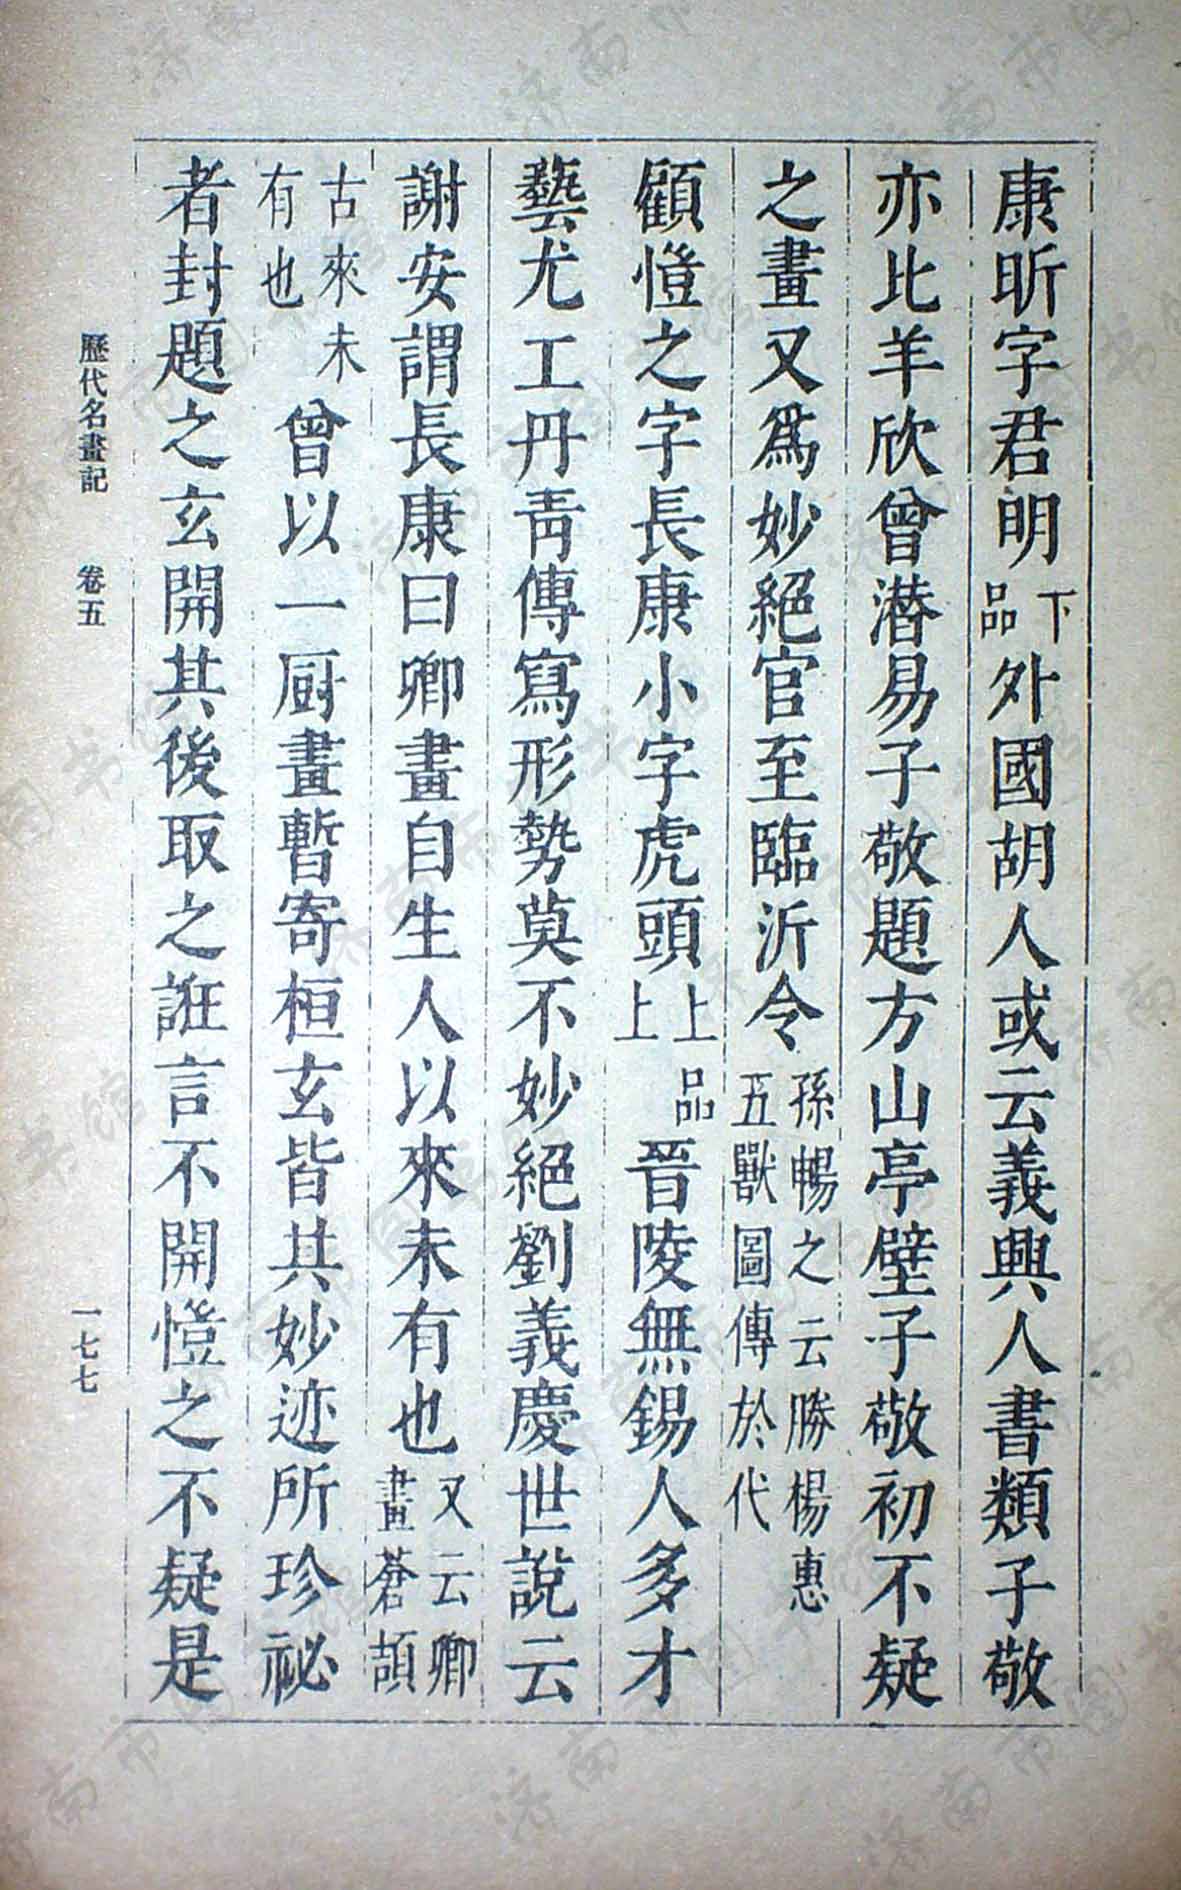 康昕字君明下品外國胡人或云義興人書類子敬
亦比羊欣曾潛易子敬題方山亭壁子敬初不疑
之畫又爲妙絕官至臨沂令孫暢之云勝楊惠五獸圖傳於代
顧愷之字長康小字虎頭上品上晉陵無錫人多才
藝尤工丹青傳寫形勢莫不妙絕劉義慶世說云
謝安謂長康曰卿畫自生人以來未有也又云卿畫蒼頡
古來未有也曾以一厨畫暫寄桓玄皆其妙迹所珍祕
者封題之玄開其後取之誑言不開愷之不疑是
歷代名畫記 卷五 一七七